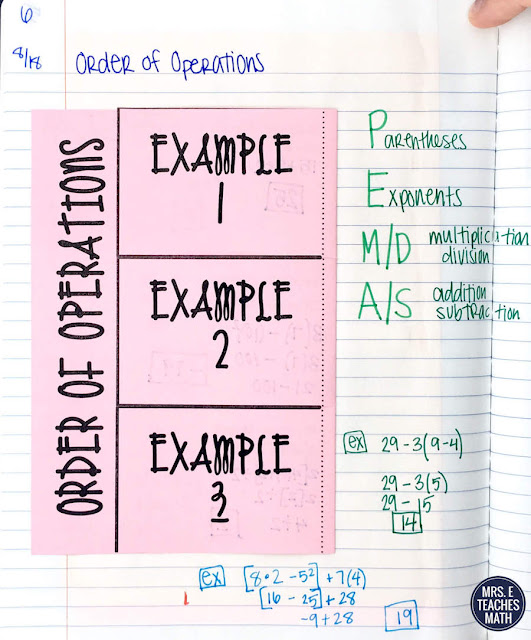 6
8/18 Order of Operations
ORDER OF OPERATIONS
EXAMPLE
1
EXAMPLE
2
EXAMPLE
3
Parentheses
Exponents
M/D multiplication
division
A/S addition
subtraction
ex 29-3(9-4)
29-3(5)
29-15
14
ex [8•2-5²]+7(4)
[16-25]+28
-9+28 19
MRS. E
TEACHES
MATH